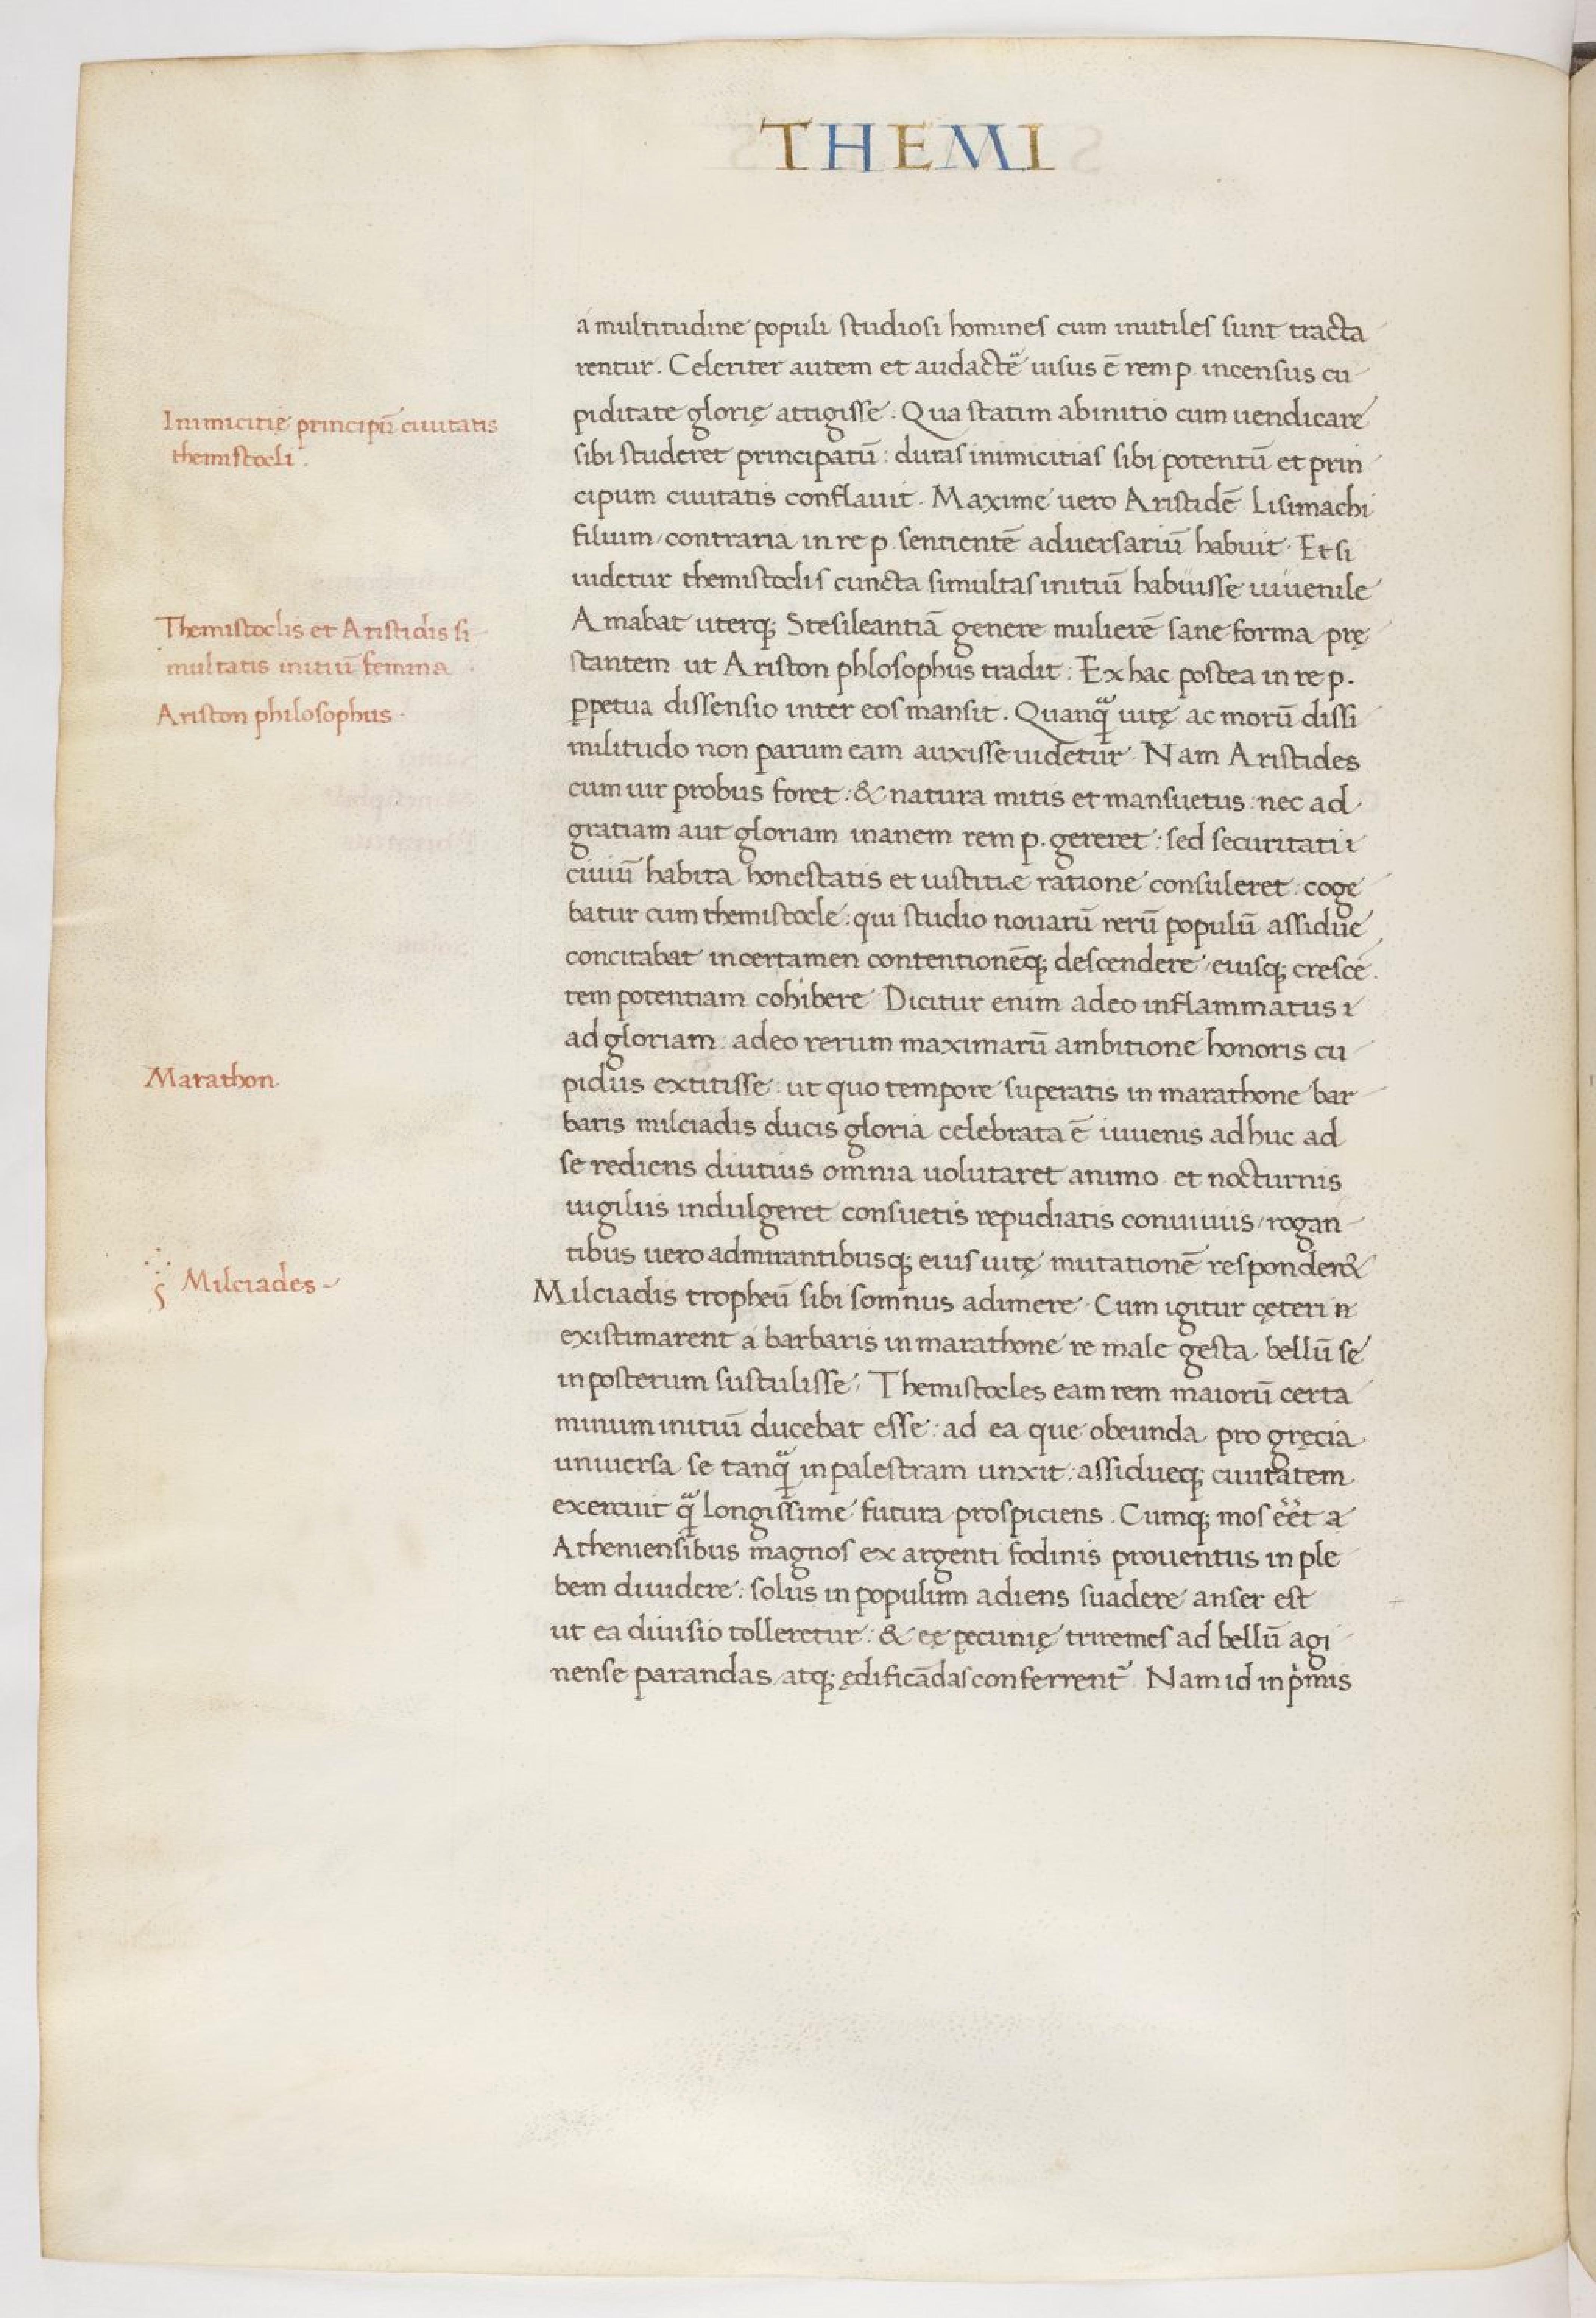 THEMI
a multitudine populi studiosi homines cum inutiles sunt tracta
rentur. Celeriter autem et audactẽ uisus ẽ rem p. incensus cu
piditate glorię attigisse. Qua statim abinitio cum uendicare
Inimicitię principũ ciuitatis
themistocli.
sibi studeret principatũ: duras inimicitias sibi potentũ et prin
cipum ciuitatis conflauit. Maxime uero Aristidẽ Lisimachi
filium/contraria in re p. sentientẽ aduersariũ habuit. Et si
uidetur themistoclis cuncta simultas initiũ habuisse iuuenile
Themistoclis et Aristidis si
multatis initiũ femina.
Ariston philosophus.
Amabat uterq; Stesileantiã genere mulierẽ sane forma prę
stantem ut Ariston phlosophus tradit: Ex hac postea in re p.
ꝑpetua dissensio inter eos mansit. Quanꝗ̃ uitę ac morũ dissi
militudo non parum eam auxisse uidetur. Nam Aristides
cum uir probus foret: & natura mitis et mansuetus: nec ad
gratiam aut gloriam inanem rem p. gereret: sed securitati
ciuiũ habita honestatis et iustitiæ ratione consuleret: coge
batur cum themistocle: qui studio nouarũ rerũ populũ assidue
concitabat in certamen contentionẽq; descendere/eiusq; crescẽ
tem potentiam cohibere. Dicitur enim adeo inflammatus
ad gloriam: adeo rerum maximarũ ambitione honoris cu
Marathon.
pidus extitisse: ut quo tempore superatis in marathone bar
baris milciadis ducis gloria celebrata ẽ iuuenis adhuc ad
se rediens diutius omnia uolutaret animo et nocturnis
uigiliis indulgeret consuetis repudiatis conuiuiis/rogan
tibus uero admirantibusq; eius uitę mutationẽ responder&
Milciades
Milciadis tropheũ sibi somnus adimere. Cum igitur cęteri n
existimarent a barbaris in marathone re male gesta bellũ se
in posterum sustulisse/ Themistocles eam rem maiorũ certa
minum initiũ ducebat esse: ad ea que obeunda pro gręcia
uniuersa se tanꝗ̃ in palestram unxit: assidueq; ciuitatem
exercuit ꝗ̃ longissime futura prospiciens. Cumq; mos eẽt a
Atheniensibus magnos ex argenti fodinis prouentus in ple
bem diuidere: solus in populum adiens suadere anser est
ut ea diuisio tolleretur: & eę pecunię triremes ad bellũ agi
nense parandas/atq; ędificãdas conferrent̃. Nam id in pͥmis